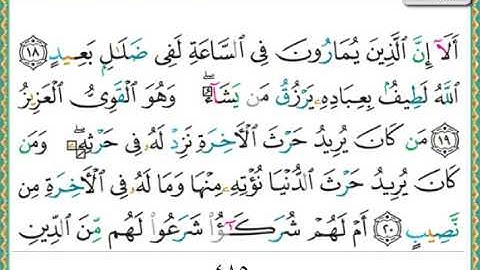 أَلَآ إِنَّ ٱلَّذِينَ يُمَارُونَ فِى ٱلسَّاعَةِ لَفِى ضَلَـٰلٍۭ بَعِيدٍ ١٨
ٱللَّهُ لَطِيفٌۢ بِعِبَادِهِۦ يَرْزُقُ مَن يَشَآءُ ۖ وَهُوَ ٱلْقَوِىُّ ٱلْعَزِيزُ
١٩ مَن كَانَ يُرِيدُ حَرْثَ ٱلْـَٔاخِرَةِ نَزِدْ لَهُۥ فِى حَرْثِهِۦ ۖ وَمَن
كَانَ يُرِيدُ حَرْثَ ٱلدُّنْيَا نُؤْتِهِۦ مِنْهَا وَمَا لَهُۥ فِى ٱلْـَٔاخِرَةِ مِن
نَّصِيبٍ ٢٠ أَمْ لَهُمْ شُرَكَـٰٓؤُا۟ شَرَعُوا۟ لَهُم مِّنَ ٱلدِّينِ
٤٨٥